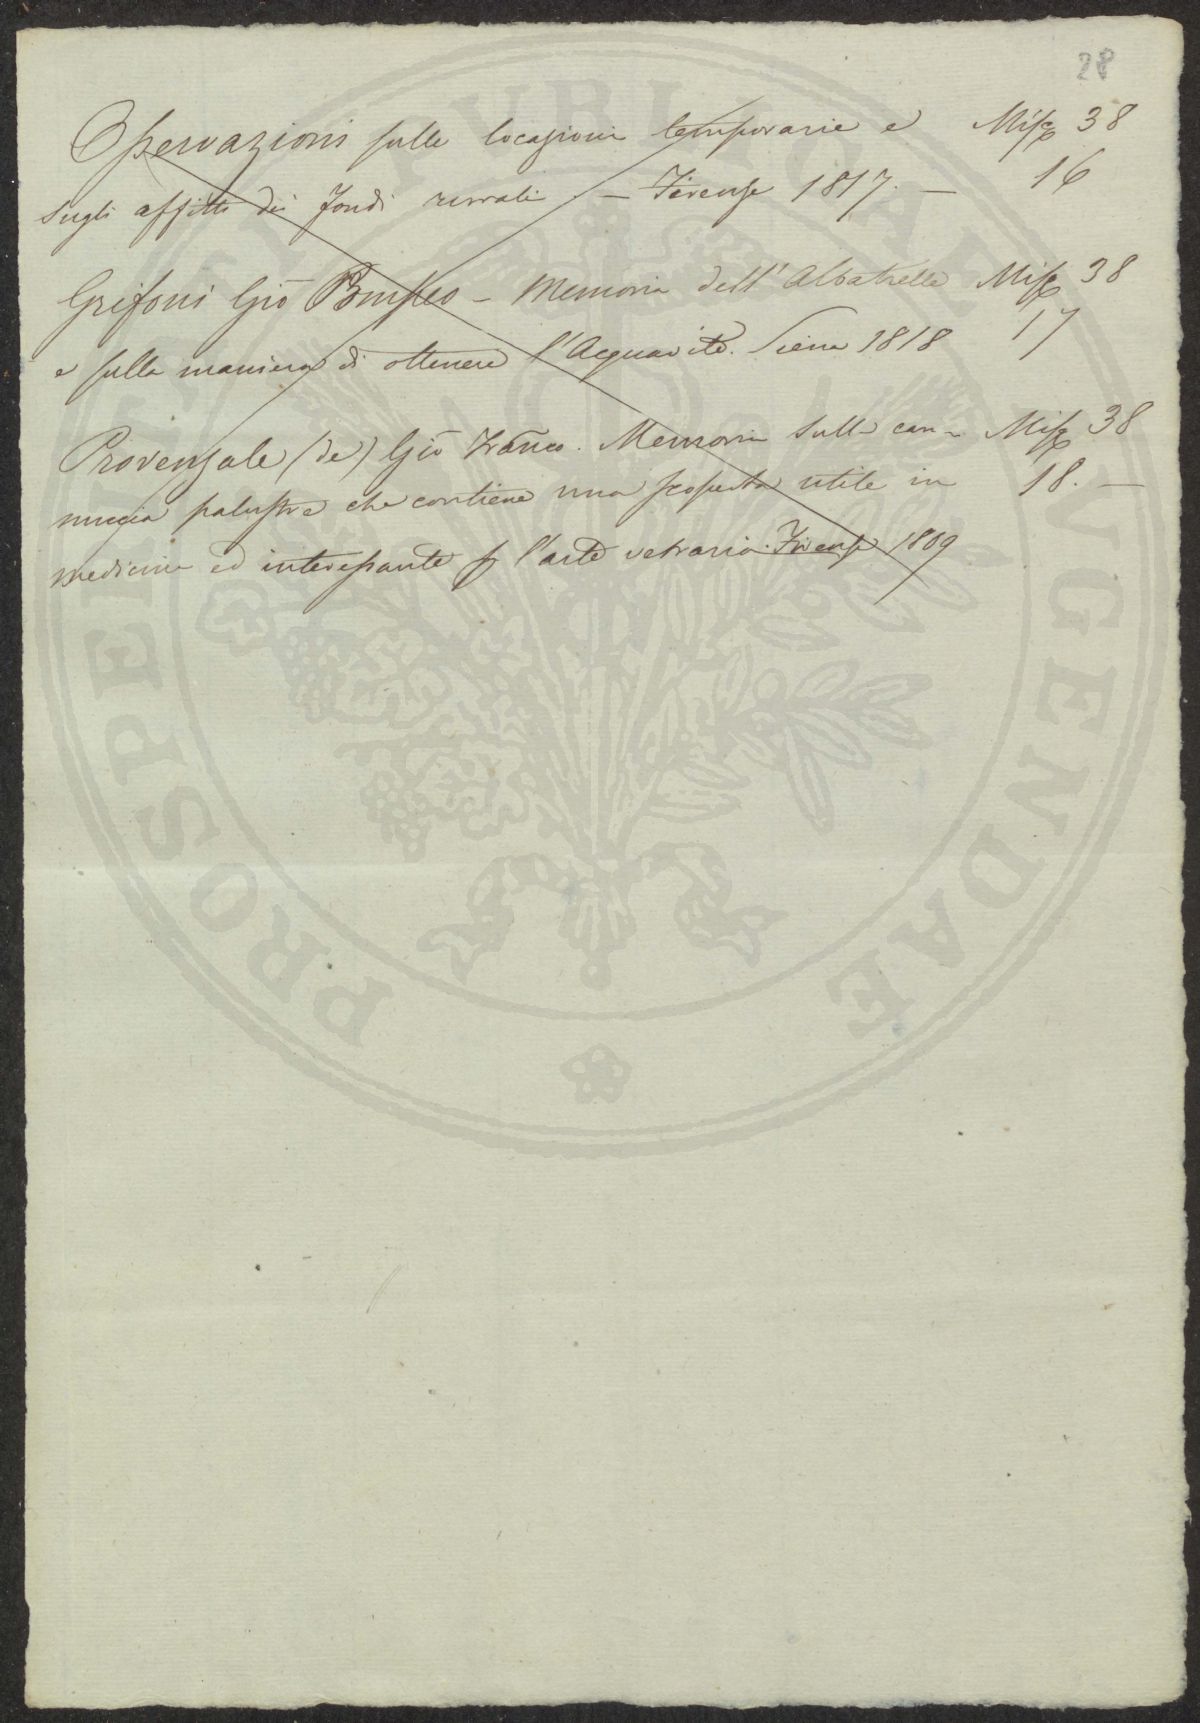 28
Osservazioni sulle locazioni temporarie e Misc. 38
sugli affitti dei fondi rurali — Firenze 1817. — 16
Grifoni Gio Pompeo — Memoria dell'Albatrella Misc. 38
e sulla maniera di ottenere l'Acquavite. Siena 1818 17
Provenzale (de) Gio Franco. Memoria sulla can- Misc. 38
nuccia palustre che contiene una scoperta utile in 18. —
medicina ed interessante p l'arte vetraria. Firenze 1809
PROSPERITATI PVBLICAE AVGENDAE